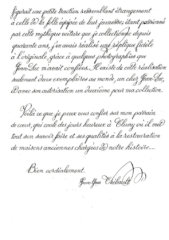 figurait une petite traction ressemblant étrangement
à celle de la folle équipée de leur jeunesse, étant passionné
par cette mythique voiture que je collectionne depuis
quarante ans, j'en avais réalisé une réplique fidèle
à l'originale, grâce à quelques photographies que
Jean-Luc m'avait confiées. Il existe de cette réalisation
seulement deux exemplaires au monde, un chez Jean-Luc.
Avec son autorisation un deuxième pour ma collection.
Voilà ce que je peux vous confier sur mon parrain
de cœur, qui coule des jours heureux à Cluny où il met
tout son savoir faire et ses qualités à la restauration
de maisons anciennes chargées de notre histoire...
Bien cordialement.
Jean-Yves